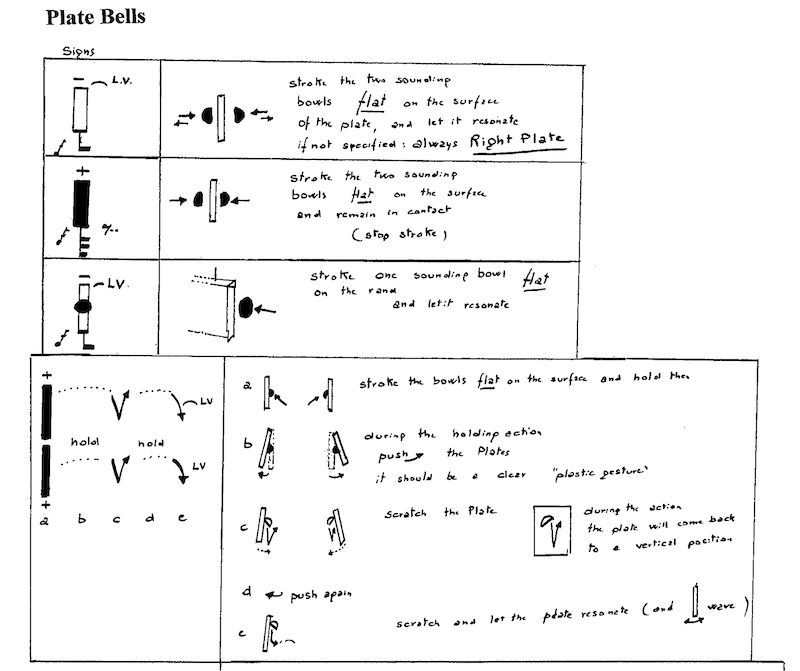 Plate Bells
Signs
– L.V.
stroke the two sounding
bowls flat on the surface
of the plate, and let it resonate
if not specified: always Right Plate
+
stroke the two sounding
bowls flat on the surface
and remain in contact
(stop stroke)
– LV.
stroke one sounding bowl flat
on the rand
and let it resonate
+
LV
hold hold
LV
+
a b c d e
a stroke the bowls flat on the surface and hold then
b during the holding action
push the Plates
it should be a clear "plastic gesture"
c scratch the Plate
during the action
the plate will come back
to a vertical position
d push again
e scratch and let the plate resonate (and wave)